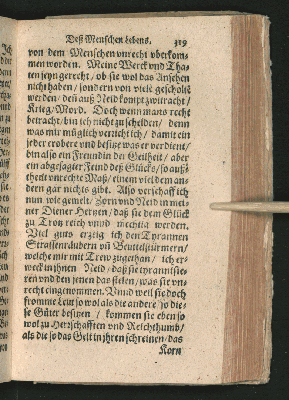 Deß Menschen Lebens. 319
von dem Menschen vnrecht vberkom-
men worden. Meine Werck vnd Tha-
ten seyn gerecht / ob sie wol das Ansehen
nicht haben / sondern von viele gescholtē
werden / deñ auß Neid kompt zwitracht /
Krieg / Mord. Doch wenn mans recht
betracht / bin ich nicht zu schelden / denn
was mir müglich verricht ich / damit ein
jeder erobere vnd besitze was er verdient /
bin also ein Freundin der Geilheit / aber
ein abgesagter Feind deß Glücks / so auß-
theilt vnrechte Maß / einem viel dem an-
dern gar nichts gibt. Also verschaff ich
nun wie gemelt / Zorn vnd Neid in mei-
ner Diener Hertzen / daß sie dem Glück
zu Trotz reich vnnd mechtig werden.
Viel guts erzeig ich den Tyrannen
Strassenräubern vñ Beuttelstürmern /
welche mir mit Trew zugethan / ich er-
weck in jhnen Neid / daß sie tyrannisie-
ren vnd den jenen das stelen / was sie vn-
recht eingenommen. Vnnd weil sie doch
fromme Leut so wol als die andere / so die-
se Güter besitzen / kommen sie eben so
wol zu Herrschafften vnd Reichthumb /
als die so das Gelt in jhren schreinen / das
Korn